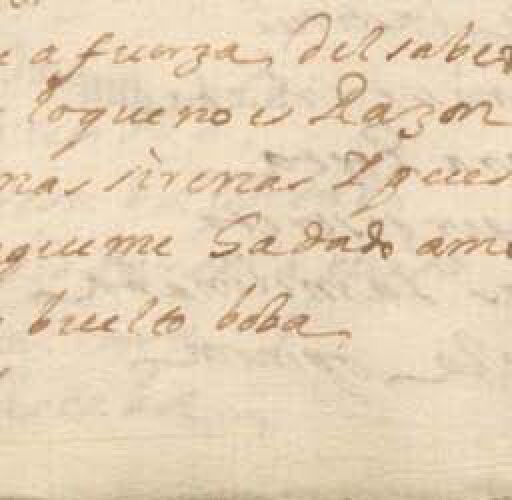 a fuerza del saber
loque no es Razon
mas sirenas Y pues
que me Ga dado amo
buelto boba